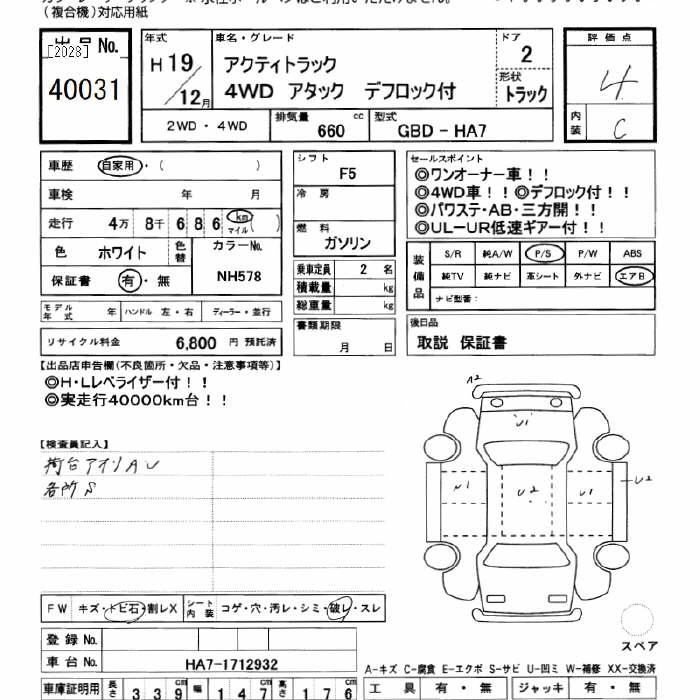 (複合機)対応用紙
出品 No.
[2028]
40031
年式
H 19/12月
車名・グレード
アクティトラック
4WD アタック デフロック付
ドア
2
形状
トラック
評価点
4
内装
C
2WD・4WD
排気量 660 cc
型式 GBD-HA7
車歴 自家用・( )
車検 年 月
走行 4万 8千 6 8 6 km マイル( )
色 ホワイト 色替
カラーNo.
NH578
保証書 有・無
モデル年式 年
ハンドル 左・右
ディーラー・並行
リサイクル料金 6,800 円 預託済
シフト
F5
冷房
燃料
ガソリン
乗車定員 2 名
積載量 kg
総重量 kg
書類期限
月 日
セールスポイント
◎ワンオーナー車!!
◎4WD車!!◎デフロック付!!
◎パワステ・AB・三方開!!
◎UL-UR低速ギアー付!!
装備品
S/R 純A/W P/S P/W ABS
純TV 純ナビ 革シート 外ナビ エアB
ナビ型番:
後日品
取説 保証書
【出品店申告欄(不良箇所・欠品・注意事項等)】
◎H・Lレベライザー付!!
◎実走行40000km台!!
【検査員記入】
荷台アオリAU
各所S
A2
U1
U1
U2
U1
U2
FW キズ・トビ石・割レX
シート内装 コゲ・穴・汚レ・シミ・破レ・スレ
登録 No.
車台 No. HA7-1712932
スペア
A-キズ C-腐食 E-エクボ S-サビ U-凹ミ W-補修 XX-交換済
車庫証明用 長さ 3 3 9 幅 1 4 7 高さ 1 7 6
工具 有・無 ジャッキ 有・無